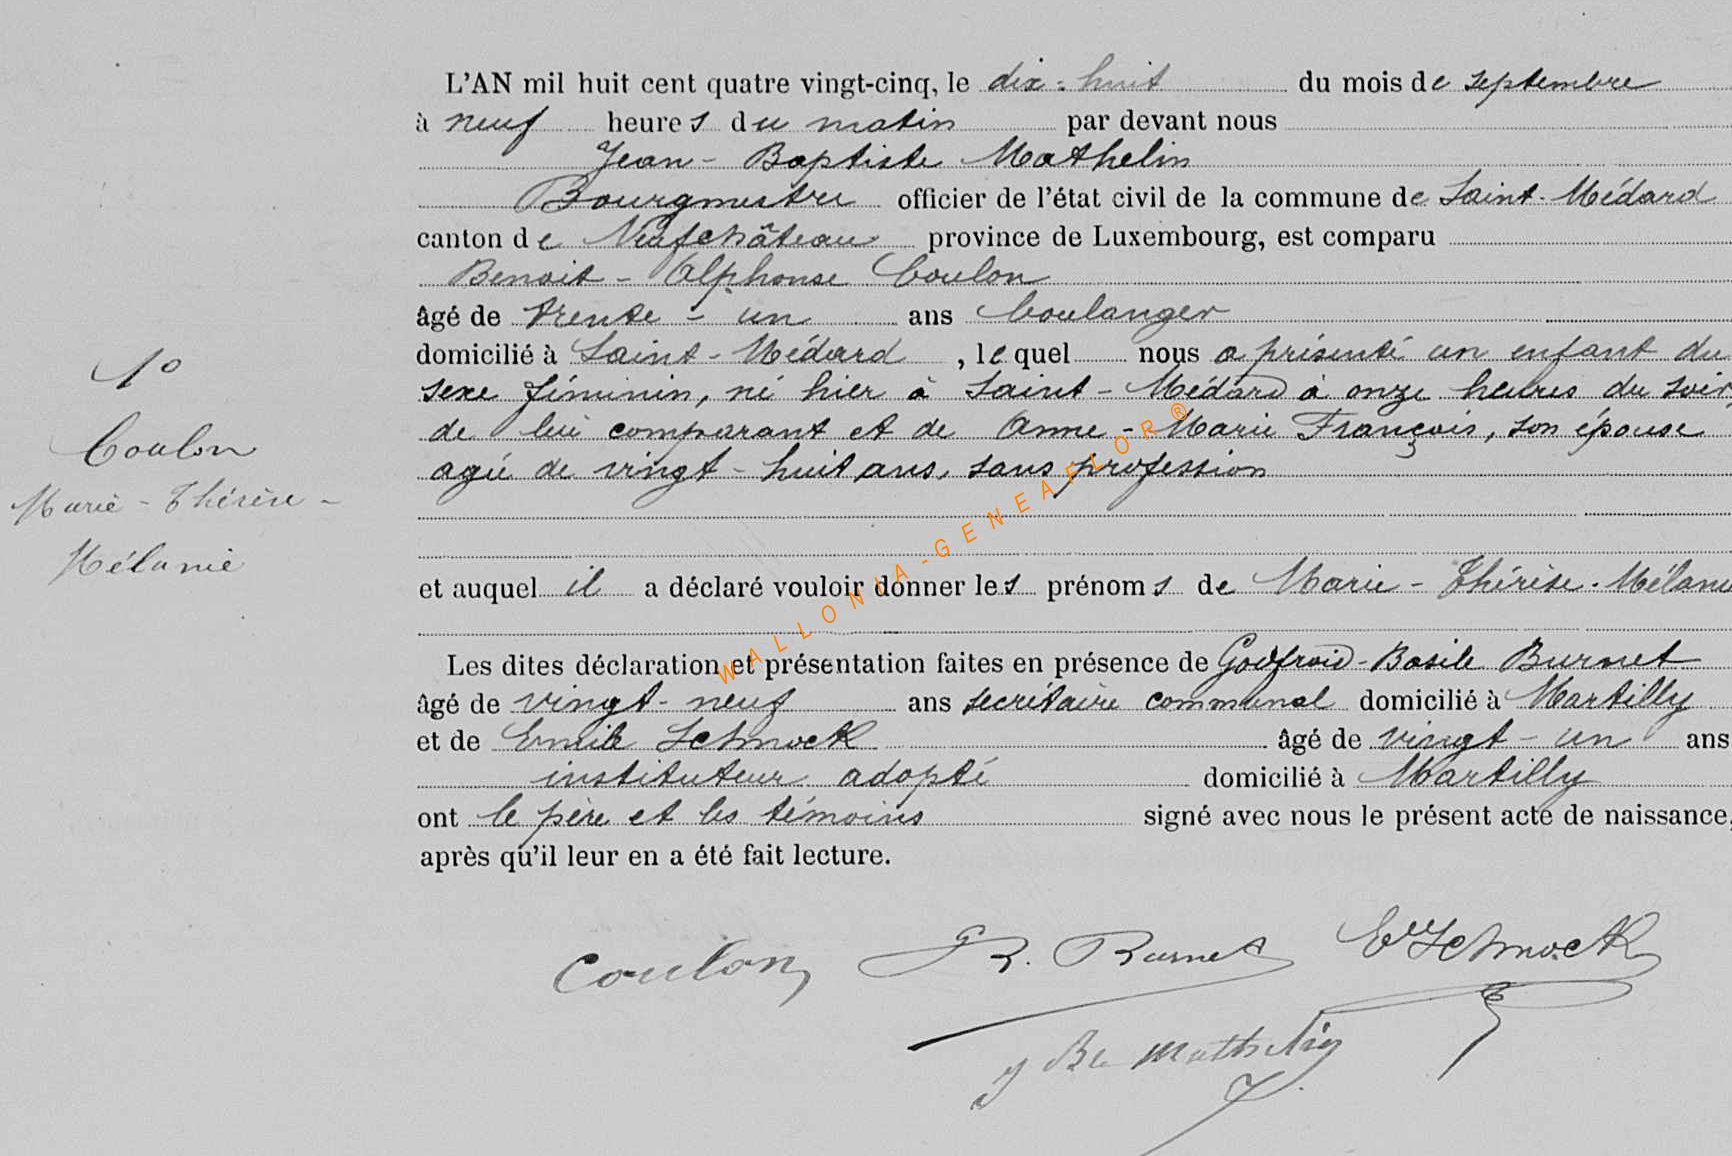 L'AN mil huit cent quatre vingt-cinq, le dix-huit du mois de septembre
à neuf heures du matin par devant nous
Jean-Baptiste Mathelin
Bourgmestre officier de l'état civil de la commune de Saint-Médard
canton de Neufchâteau province de Luxembourg, est comparu
Benoit-Alphonse Coulon
âgé de trente-un ans boulanger
domicilié à Saint-Médard, lequel nous a présenté un enfant du
sexe féminin, né hier à Saint-Médard à onze heures du soir,
de lui comparant et de Anne-Marie François, son épouse
agée de vingt-huit ans, sans profession
et auquel il a déclaré vouloir donner les prénoms de Marie-Thérèse-Mélanie
Les dites déclaration et présentation faites en présence de Godfroid-Basile Burnet
âgé de vingt-neuf ans secrétaire communal domicilié à Martilly
et de Emile Schmock âgé de vingt-un ans
instituteur adopté domicilié à Martilly
ont le père et les témoins signé avec nous le présent acte de naissance,
après qu'il leur en a été fait lecture.
1°
Coulon
Marie-Thérèse-
Mélanie
Coulon B. Burnet Schmock
J Bte Mathelin
WALLONIA-GENEAFLOR®